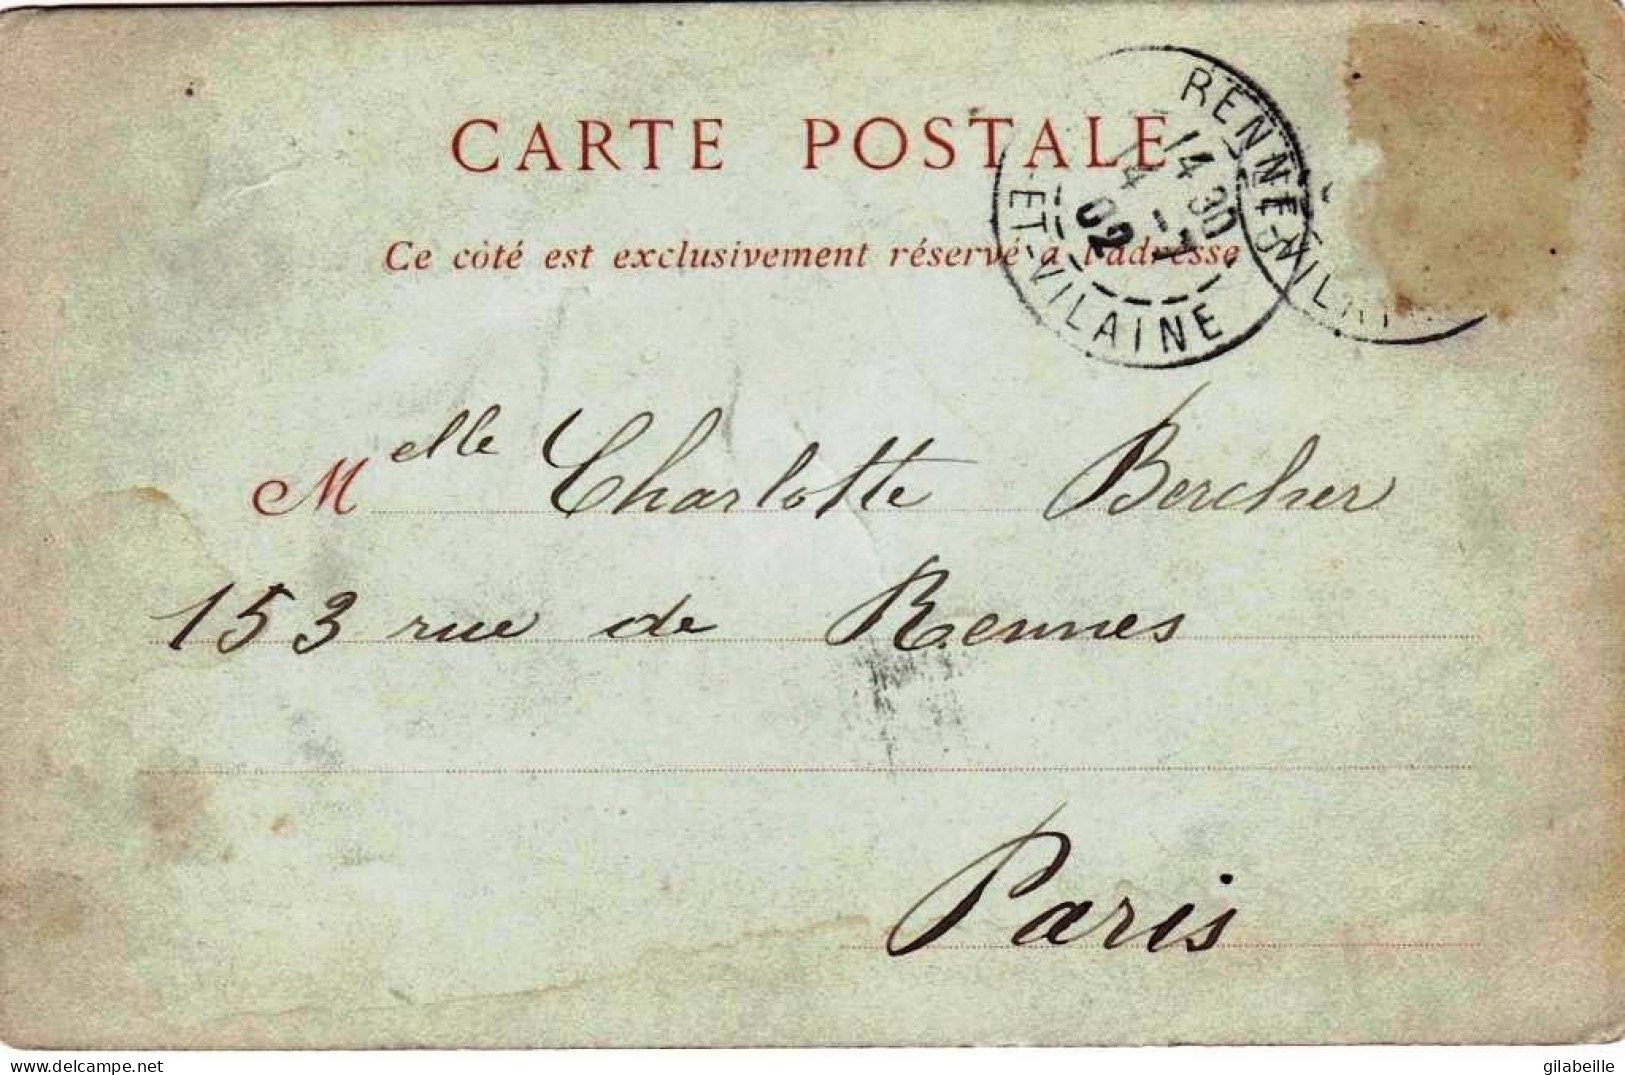 CARTE POSTALE
Ce côté est exclusivement réservé a l'adresse
RENNES
14 30
14 -1
02
ET-VILAINE
RENNES
VILAI
Melle Charlotte Bercher
153 rue de Rennes
Paris
gilabeille